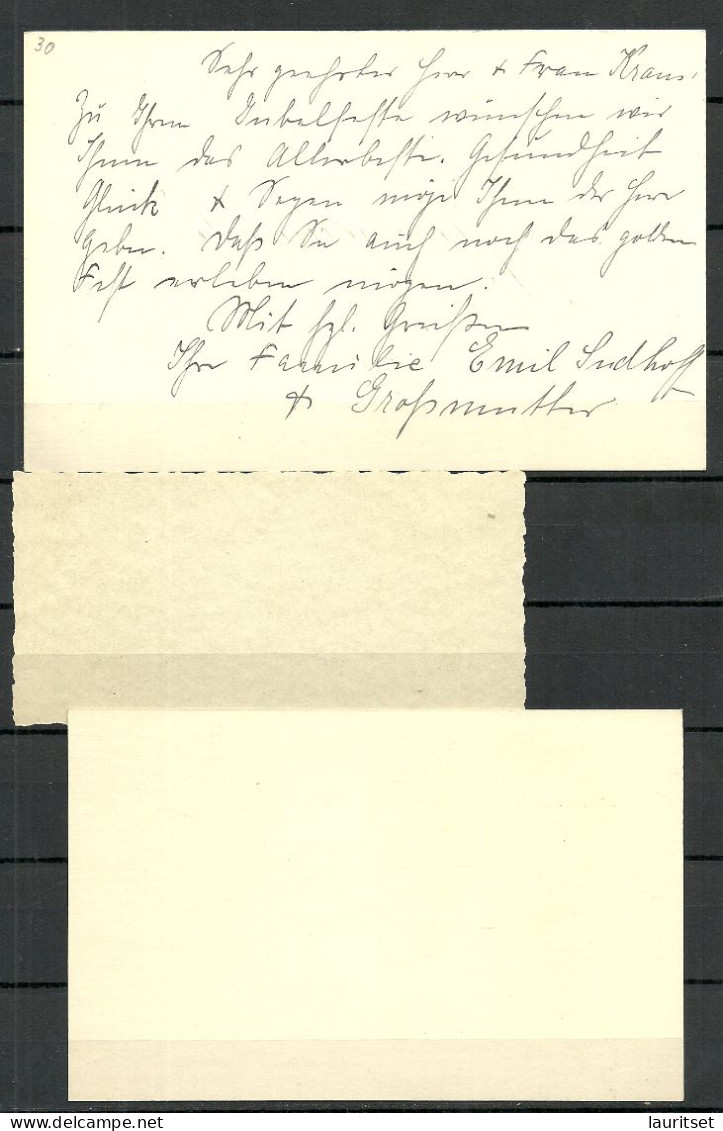 30
Sehr geehrter Herr & Frau Kraus,
Zu Ihrem Jubelfeste wünschen wir
Ihnen das Allerbeste. Gesundheit
Glück & Segen möge Ihnen der Herr
geben. Daß Sie auch noch das golden
Fest erleben mögen.
Mit hzl. Grüßen
Ihre Familie Emil Sudhoff
& Großmutter
lauritset